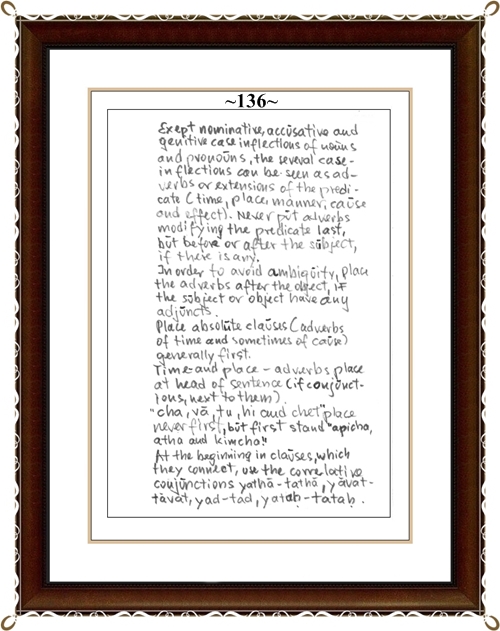 ~136~
Exept nominative, accusative and
genitive case inflections of nouns
and pronouns, the several case-
inflections can be seen as ad-
verbs or extensions of the predi-
cate (time, place, manner, cause
and effect). Never put adverbs
modifying the predicate last,
but before or after the subject,
if there is any.
In order to avoid ambiguity, place
the adverbs after the object, if
the subject or object have any
adjuncts.
Place absolute clauses (adverbs
of time and sometimes of cause)
generally first.
Time-and place-adverbs place
at head of sentence (if conjunct-
ions, next to them).
"cha, vā, tu, hi and chet" place
never first, but first stand "apicha,
atha and kimcha."
At the beginning in clauses, which
they connect, use the correlative
conjunctions yathā-tathā, yāvat-
tāvat, yad-tad, yataḥ-tataḥ.